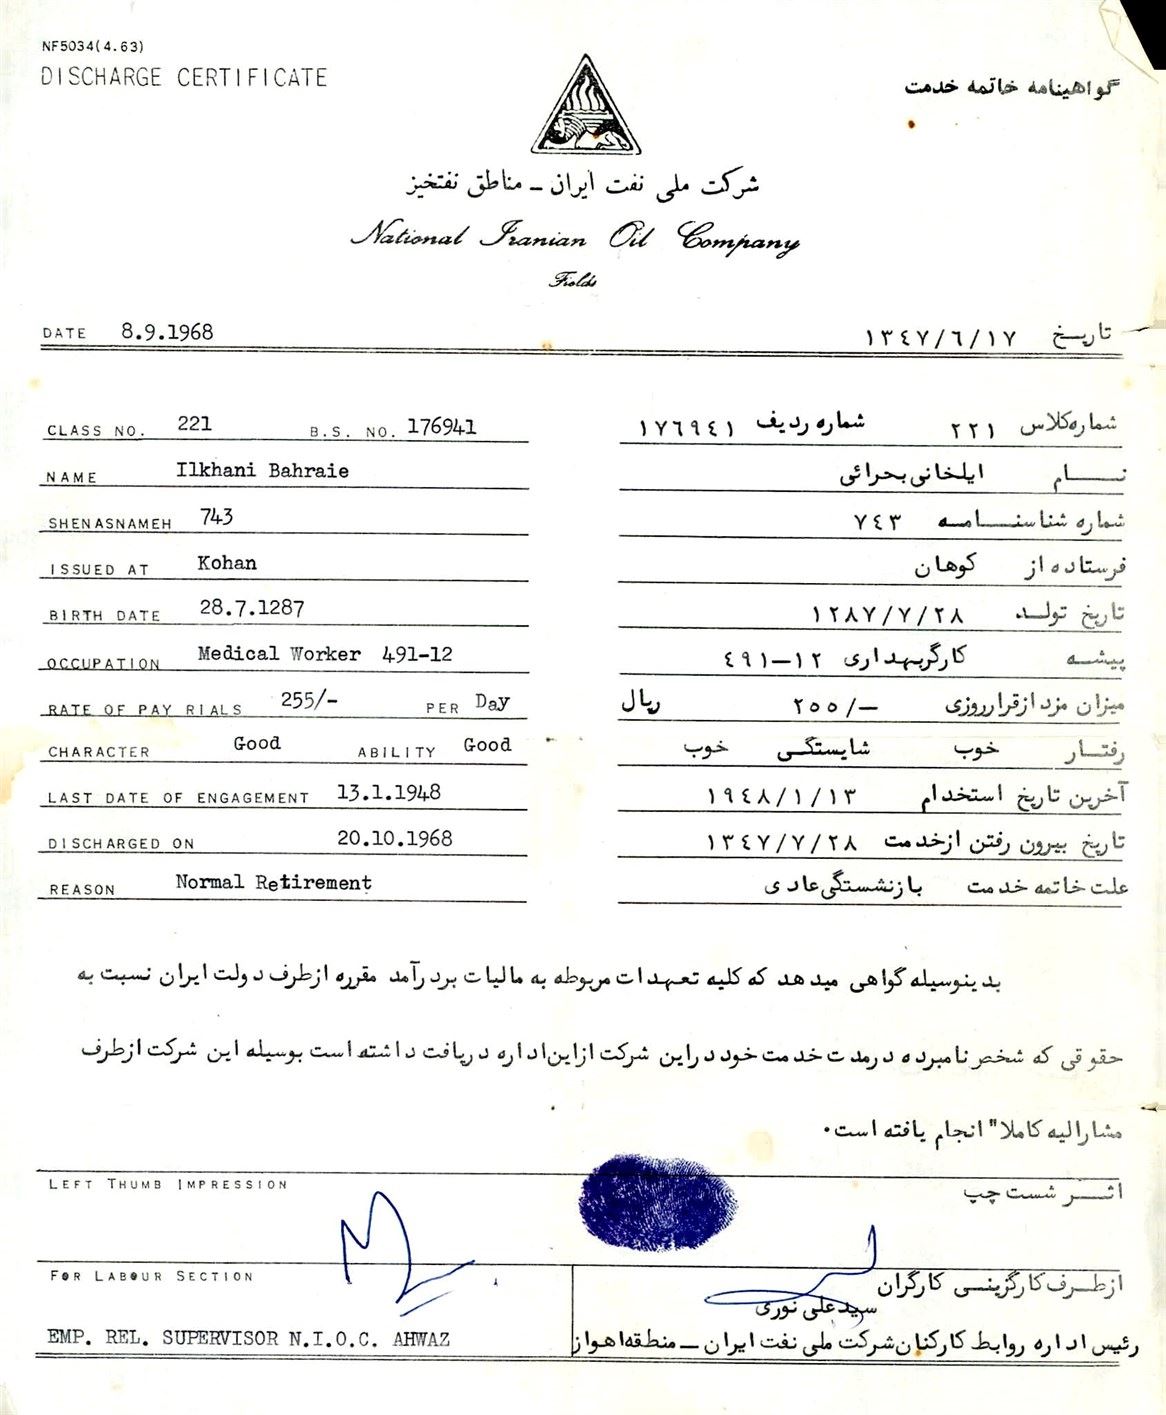 NF5034(4.63)
DISCHARGE CERTIFICATE
گواهینامه خاتمه خدمت
شرکت ملی نفت ایران – مناطق نفتخیز
National Iranian Oil Company
Fields
DATE 8.9.1968
تاریخ ١٣٤٧/٦/١٧
CLASS NO. 221 B.S. NO. 176941
شماره کلاس ٢٢١ شماره ردیف ١٧٦٩٤١
NAME Ilkhani Bahraie
نام ایلخانی بحرائی
SHENASNAMEH 743
شماره شناسنامه ٧٤٣
ISSUED AT Kohan
فرستاده از کوهان
BIRTH DATE 28.7.1287
تاریخ تولد ١٢٨٧/٧/٢٨
OCCUPATION Medical Worker 491-12
پیشه کارگر بهداری ١٢-٤٩١
RATE OF PAY RIALS 255/- PER Day
میزان مزد از قرار روزی ٢٥٥/- ریال
CHARACTER Good ABILITY Good
رفتار خوب شایستگی خوب
LAST DATE OF ENGAGEMENT 13.1.1948
آخرین تاریخ استخدام ١٩٤٨/١/١٣
DISCHARGED ON 20.10.1968
تاریخ بیرون رفتن از خدمت ١٣٤٧/٧/٢٨
REASON Normal Retirement
علت خاتمه خدمت بازنشستگی عادی
بدینوسیله گواهی میدهد که کلیه تعهدات مربوطه به مالیات بر درآمد مقرره از طرف دولت ایران نسبت به
حقوقی که شخص نامبرده در مدت خدمت خود در این شرکت از این اداره دریافت داشته است بوسیله این شرکت از طرف
مشارالیه کاملا" انجام یافته است.
LEFT THUMB IMPRESSION
اثر شست چپ
FOR LABOUR SECTION
از طرف کارگزینی کارگران
سید علی نوری
EMP. REL. SUPERVISOR N.I.O.C. AHWAZ
رئیس اداره روابط کارکنان شرکت ملی نفت ایران – منطقه اهواز